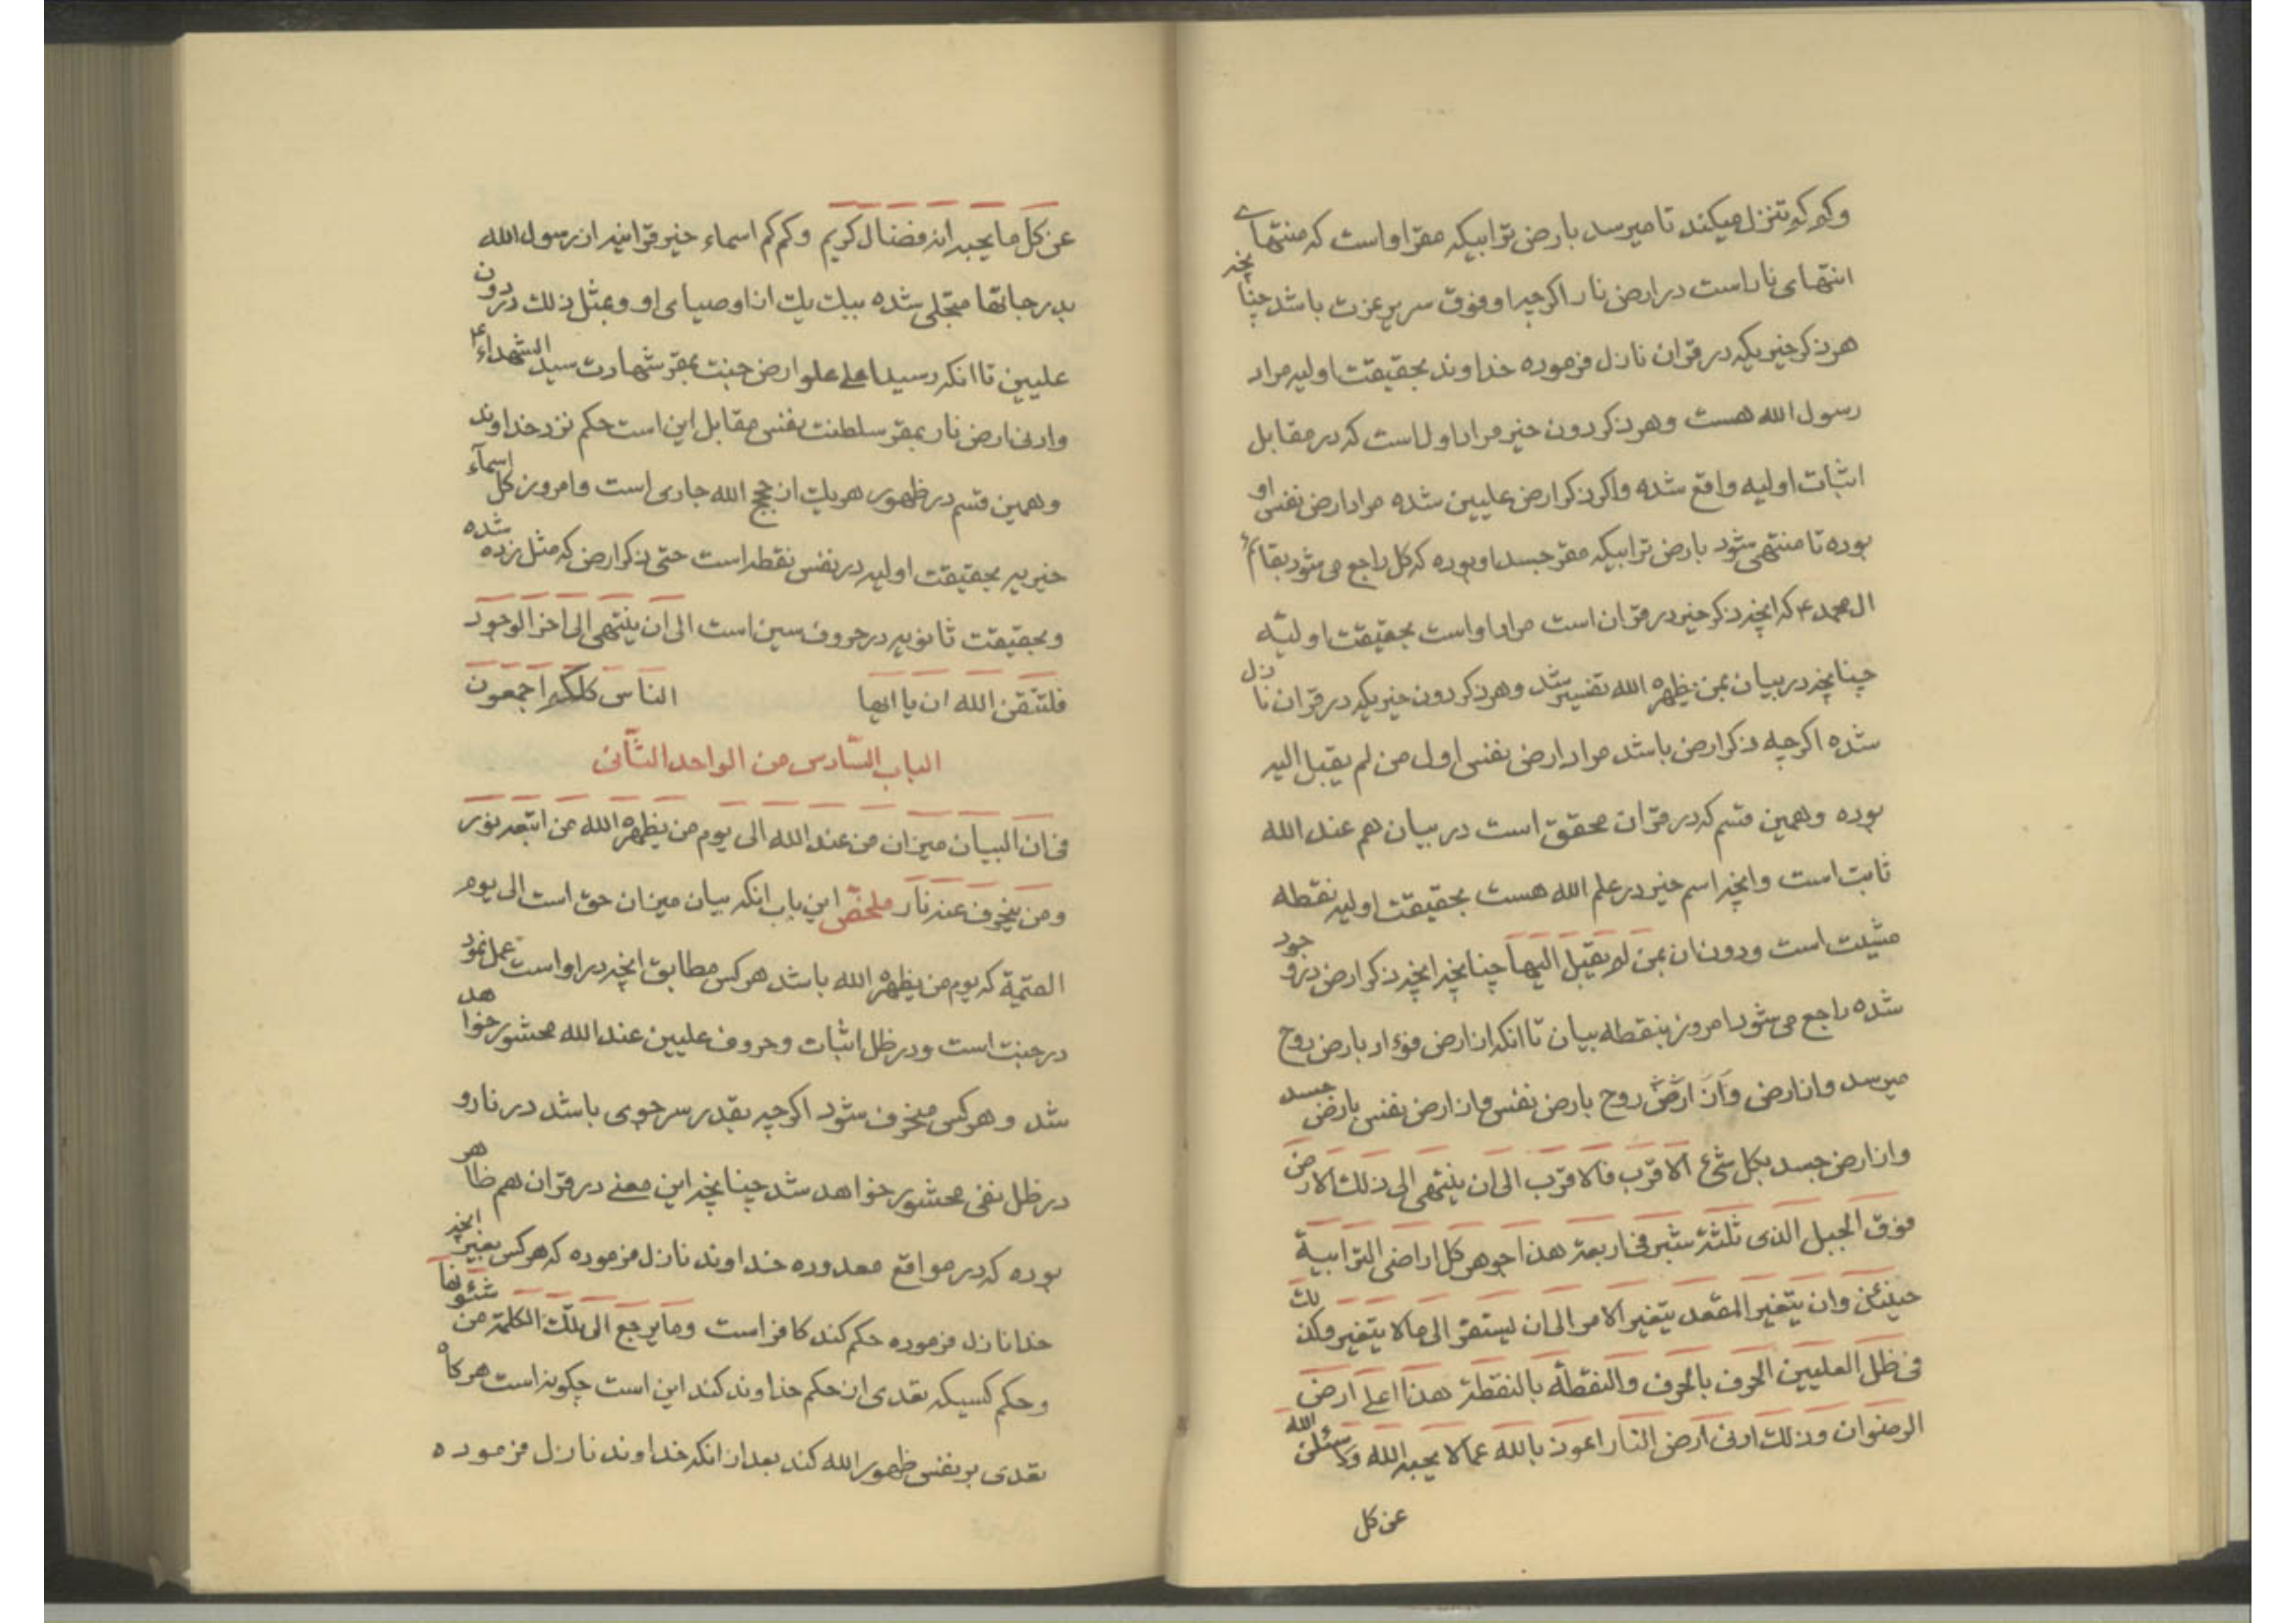 وکم کم تنزل میکند تا میرسد بارض ترابیکه مقر او است که منتهای
انتهای نار است در ارض نار اکرچه او فوق سریر عزت باشد چنانچه
هر ذکر خیریکه در قران نازل فرموده خداوند بحقیقت اولیه مراد
رسول الله هست وهر ذکر دون خیر مراد اول است که در مقابل
اثبات اولیه واقع شده واکر ذکر ارض علیین شده مراد ارض نفس او
بوده تا منتهی شود بارض ترابیکه مقر جسد او بوده که کل راجع می شود بقائم
ال محمد ع که انچه ذکر خیر در قران است مراد او است بحقیقت اولیّه
چنانچه در بیان بمن یظهره الله تفسیر شد وهر ذکر دون خیریکه در قران نازل
شده اکرچه ذکر ارض باشد مراد ارض نفس اول من لم یقبل الیه
بوده وهمین قسم که در قران محقق است در بیان هم عند الله
ثابت است وانچه اسم خیر در علم الله هست بحقیقت اولیه نقطه
مشیت است ودون ان بمن لم یقبل الیها چنانچه انچه ذکر ارض در وجود
شده راجع می شود امروز بنقطه بیان تا انکه از ارض فؤاد بارض روح
میرسد واز ارض وان ارض روح بارض نفس واز ارض نفس بارض جسد
واز ارض جسد بکل شیء الاقرب فالاقرب الی ان ینتهی الی ذلك الارض
فوق الجبل الذی ثلثة شبر فی اربعة هذا جوهر کل اراضی الترابیة
حینئذ وان یتغیر المقعد یتغیر الامر الی ان یستقر الی ما لا یتغیر وکذلك
فی ظل العلیین الحرف بالحرف والنقطة بالنقطة هذا اعلی ارض
الرضوان وذلك ادنی ارض النار اعوذ بالله عما لا یحبه الله ولاسئلن الله
عن کل
عن کل ما یحبه انه فضال کریم وکم کم اسماء خیر قرانیه از رسول الله
بدرجاتها متجلی شده بیك یك از اوصیای او وبمثل ذلك در دون
علیین تا انکه رسید اعلی علو ارض جنت بمقر شهادت سید الشهداء ع
وادنی ارض نار بمقر سلطنت نفس مقابل این است حکم نزد خداوند
وهمین قسم در ظهور هر یك از حجج الله جاری است وامروز کل اسمآء
خیریه بحقیقت اولیه در نفس نقطه است حتی ذکر ارض که مثل زده شده
وبحقیقت ثانویه در حروف سین است الی ان ینتهی الی اخر الوجود
فلتتقن الله ان یا ایها الناس کلکم اجمعون
الباب السّادس من الواحد الثّانی
فی ان البیان میزان من عند الله الی یوم من یظهره الله من اتبعه نور
ومن ینحرف عنه نار ملخص این باب انکه بیان میزان حق است الی یوم
القیمة که یوم من یظهره الله باشد هر کس مطابق انچه در او است عمل نمود
در جنت است ودر ظل اثبات وحروف علیین عند الله محشور خواهد
شد وهر کس منحرف شود اکرچه بقدر سر جوی باشد در نار و
در ظل نفی محشور خواهد شد چنانچه این معنی در قران هم ظاهر
بوده که در مواقع معدوده خداوند نازل فرموده که هر کس بغیر انچه
خدا نازل فرموده حکم کند کافر است وما یرجع الی تلك الکلمة من شئونها
وحکم کسیکه تعدی از حکم خداوند کند این است چکونه است هر کاه
تعدی بر نفس ظهور الله کند بعد از انکه خداوند نازل فرموده